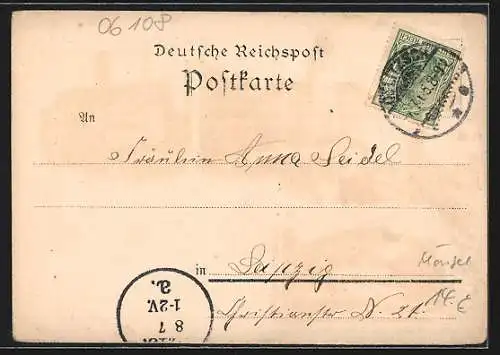 06108
Deutsche Reichspost
Postkarte
An
Fräulein Anna Seidel
in Leipzig
Christianstr. N. 21.
14.-€
8 7
1-2V.
a.